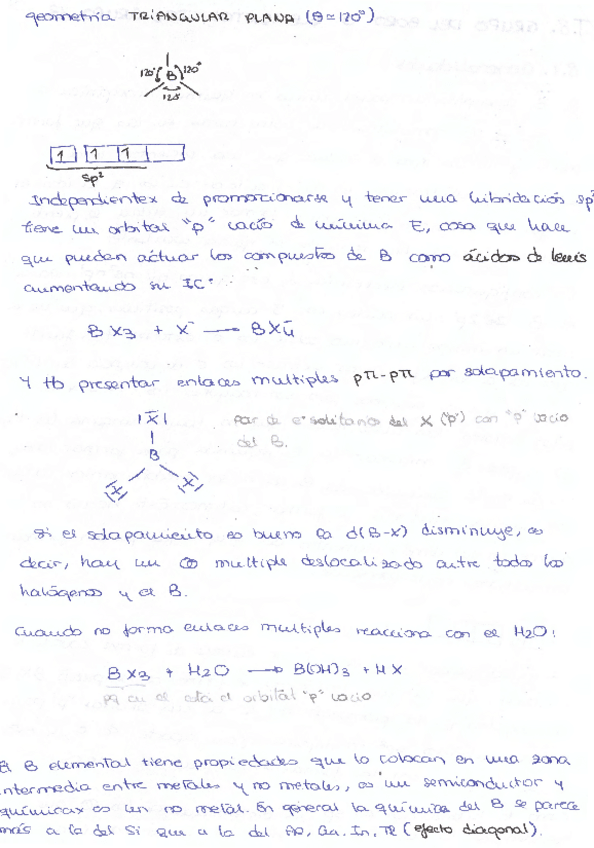 geometría TRIANGULAR PLANA (θ≃120°)
120° B 120°
120
1 1 1
sp²
Independientex de promocionarse y tener una hibridación sp²
tiene un orbital "p" vacío de mínima E, cosa que hace
que puedan actuar los compuestos de B como ácidos de lewis
aumentando su IC:
BX3 + X⁻ → BX4⁻
Y tb presentar enlaces multiples pπ-pπ por solapamiento.
|X̄| Par de e⁻ solitarios del X ("p") con "p" vacio
B del B.
X X
Si el solapamiento es bueno la d(B-X) disminuye, es
decir, hay un multiple deslocalizado entre todos los
halógenos y el B.
Cuando no forma enlaces multiples reacciona con el H2O:
BX3 + H2O → B(OH)3 + HX
pq en él está el orbital "p" vacio
El B elemental tiene propiedades que lo colocan en una zona
intermedia entre metales y no metales, es un semiconductor y
químicax es un no metal. En general la química del B se parece
más a la del Si que a la del Al, Ga, In, Tl (efecto diagonal).